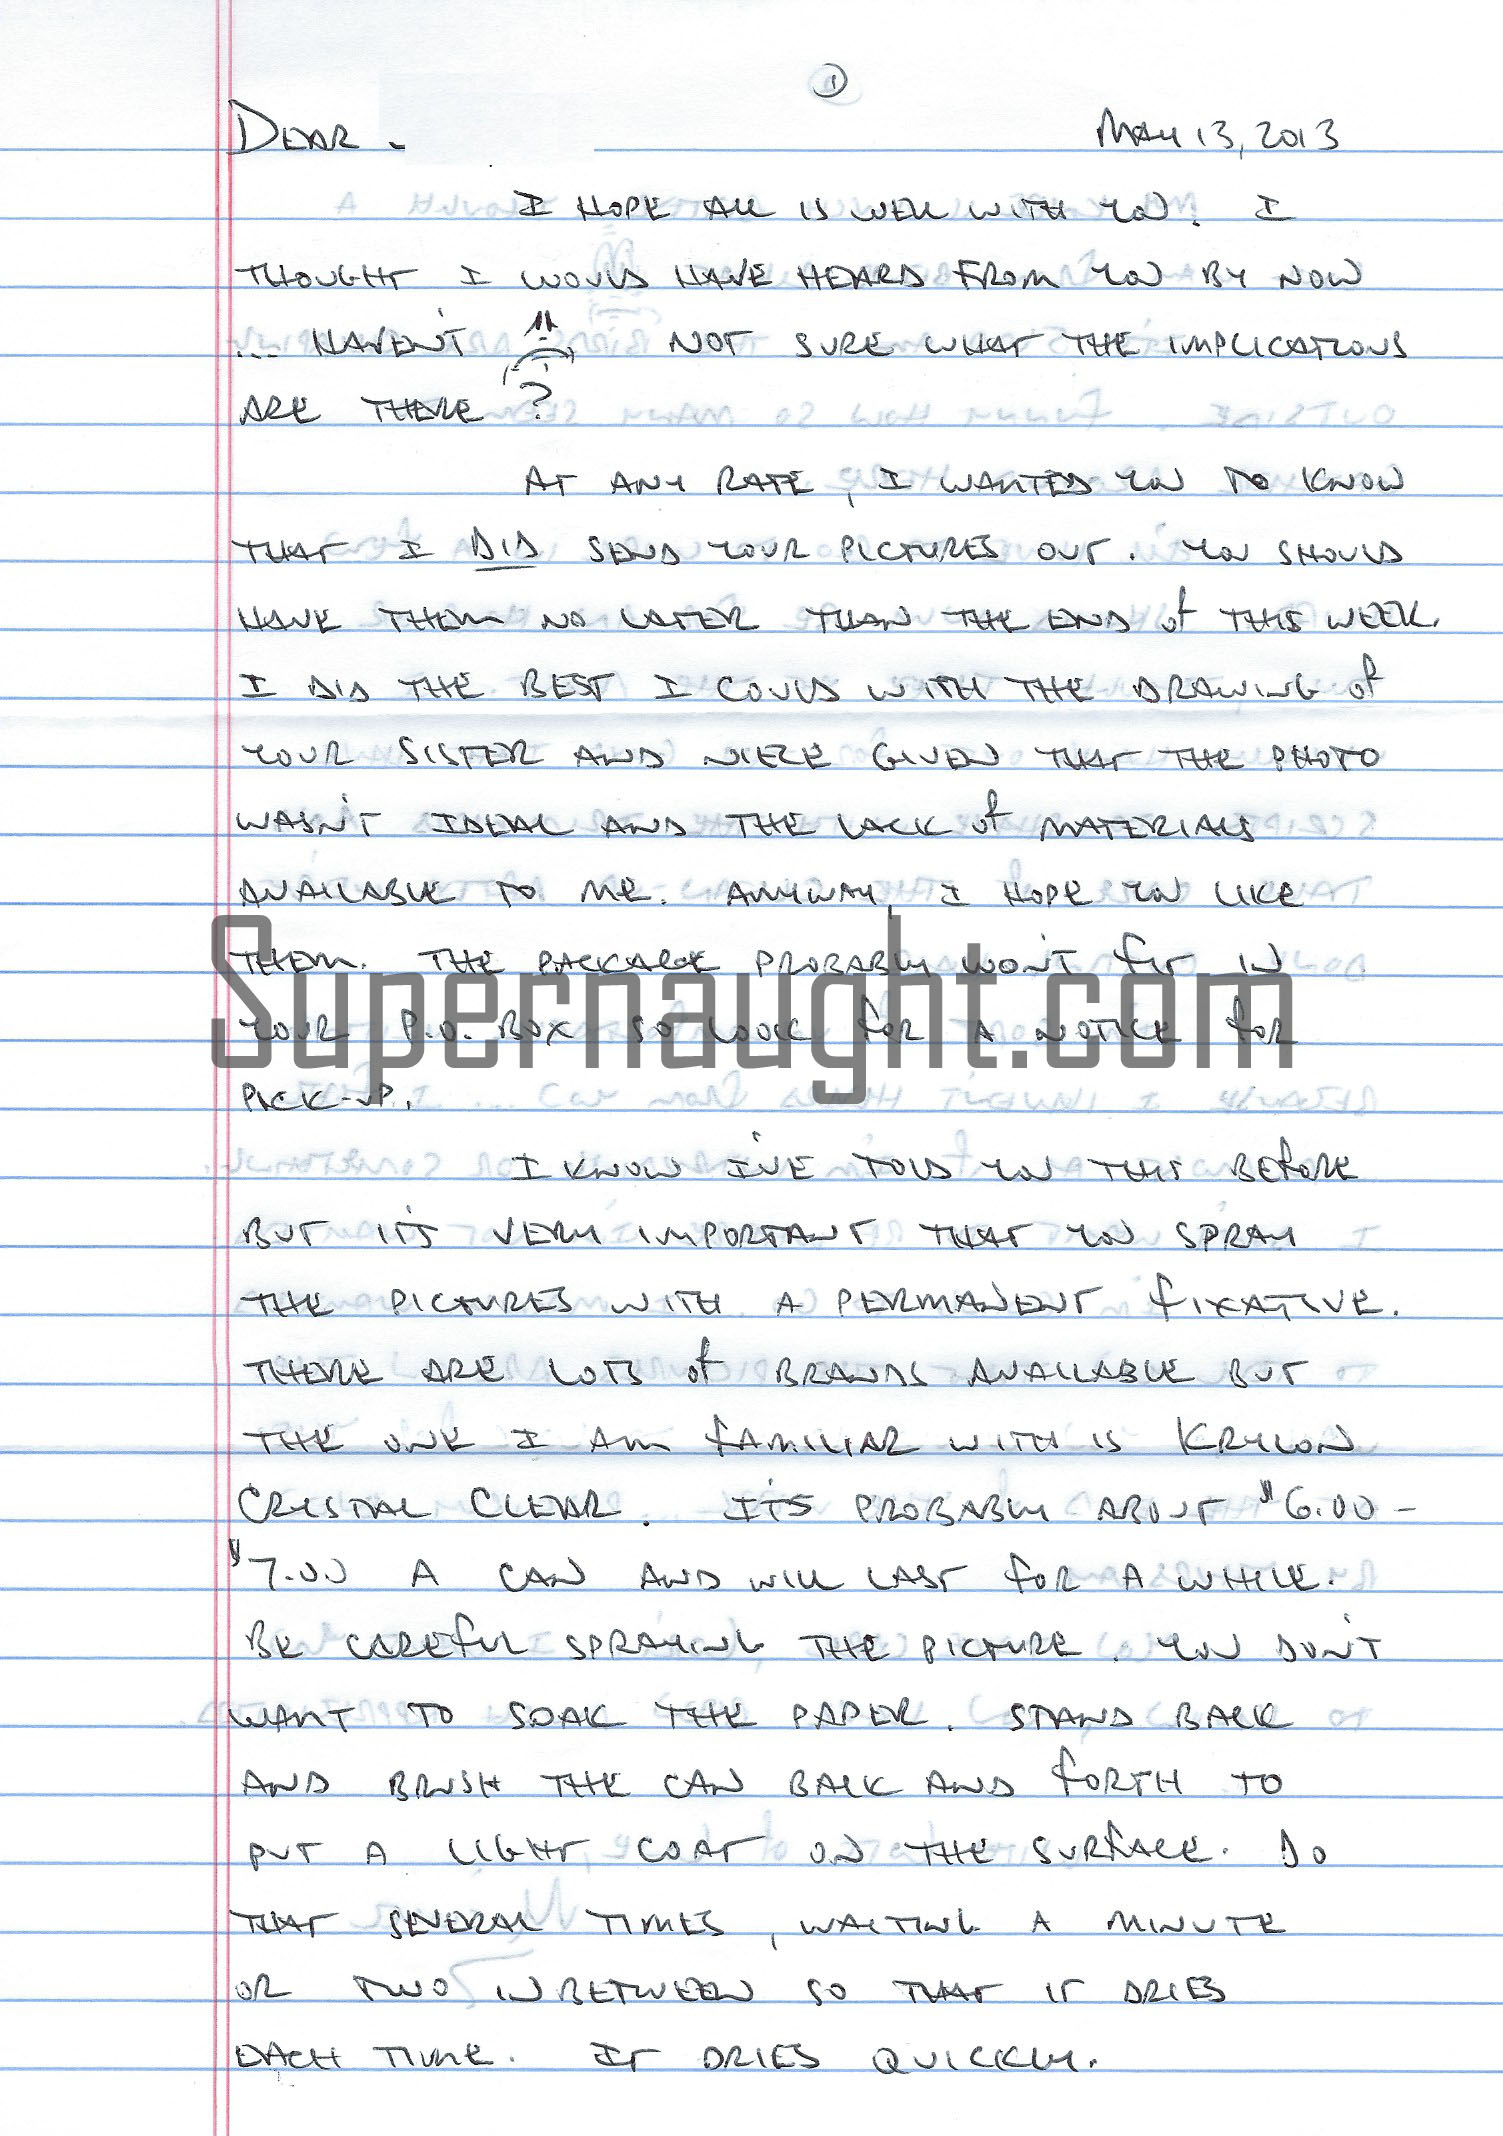 ①
DEAR - MAY 13, 2013
I HOPE ALL IS WELL WITH YOU. I
THOUGHT I WOULD HAVE HEARD FROM YOU BY NOW
... HAVEN'T NOT SURE WHAT THE IMPLICATIONS
ARE THERE?
AT ANY RATE, I WANTED YOU TO KNOW
THAT I DID SEND YOUR PICTURES OUT. YOU SHOULD
HAVE THEM NO LATER THAN THE END of THIS WEEK.
I DID THE BEST I COULD WITH THE DRAWING of
YOUR SISTER AND NIECE GIVEN THAT THE PHOTO
WASN'T IDEAL AND THE LACK of MATERIALS
AVAILABLE TO ME. ANYWAY, I HOPE YOU LIKE
THEM. THE PACKAGE PROBABLY WON'T fIT IN
YOUR P.O. BOX SO LOOK fOR A NOTICE fOR
PICK-UP.
Supernaught.com
I KNOW I'VE TOLD YOU THIS BEfORE
BUT IT'S VERY IMPORTANT THAT YOU SPRAY
THE PICTURES WITH A PERMANENT fIXATIVE.
THERE ARE LOTS of BRANDS AVAILABLE BUT
THE ONE I AM fAMILIAR WITH IS KRYLON
CRYSTAL CLEAR. ITS PROBABLY ABOUT $6.00 -
$7.00 A CAN AND WILL LAST fOR A WHILE.
BE CAREfUL SPRAYING THE PICTURE. YOU DON'T
WANT TO SOAK THE PAPER. STAND BACK
AND BRUSH THE CAN BACK AND fORTH TO
PUT A LIGHT COAT ON THE SURfACE. DO
THAT SEVERAL TIMES, WAITING A MINUTE
OR TWO IN BETWEEN SO THAT IT DRIES
EACH TIME. IT DRIES QUICKLY.